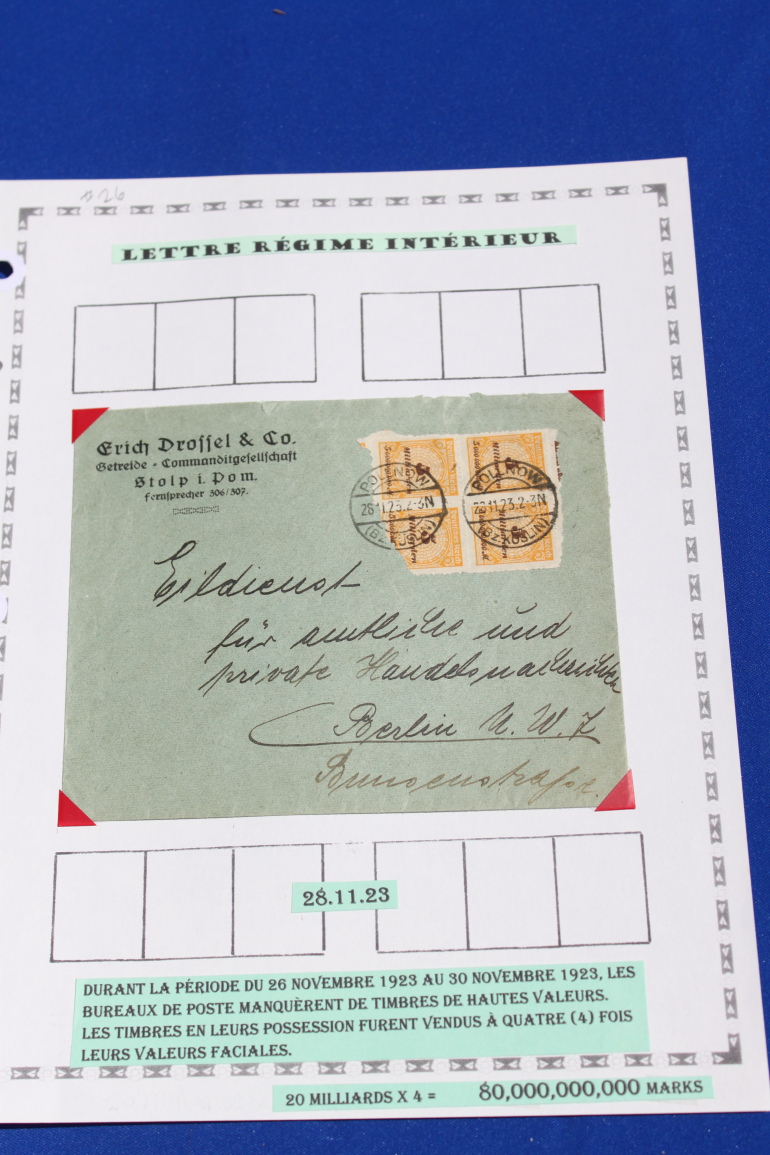 #26
LETTRE RÉGIME INTÉRIEUR
Erich Drossel & Co.
Getreide-Commanditgesellschaft
Stolp i. Pom.
Fernsprecher 306/307.
5 Milliarden
5 Milliarden
POLLNOW
28.11.23.2-3N
(BZ. KÖSLIN)
POLLNOW
28.11.23.2-3N
(BZ. KÖSLIN)
Eildienst
für amtliche und
private Handelsnachrichten
Berlin N. W. 7
Bunsenstraße.
28.11.23
DURANT LA PÉRIODE DU 26 NOVEMBRE 1923 AU 30 NOVEMBRE 1923, LES
BUREAUX DE POSTE MANQUÈRENT DE TIMBRES DE HAUTES VALEURS.
LES TIMBRES EN LEURS POSSESSION FURENT VENDUS À QUATRE (4) FOIS
LEURS VALEURS FACIALES.
20 MILLIARDS X 4 = 80,000,000,000 MARKS